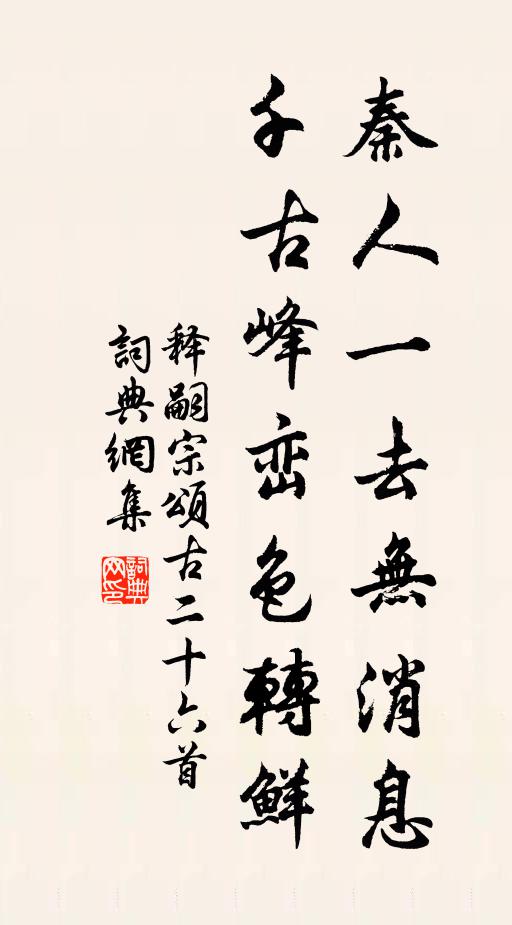 秦人一去無消息
千古峰峦色轉鮮
释嗣宗頌古二十六首
詞典網集
詞典网印